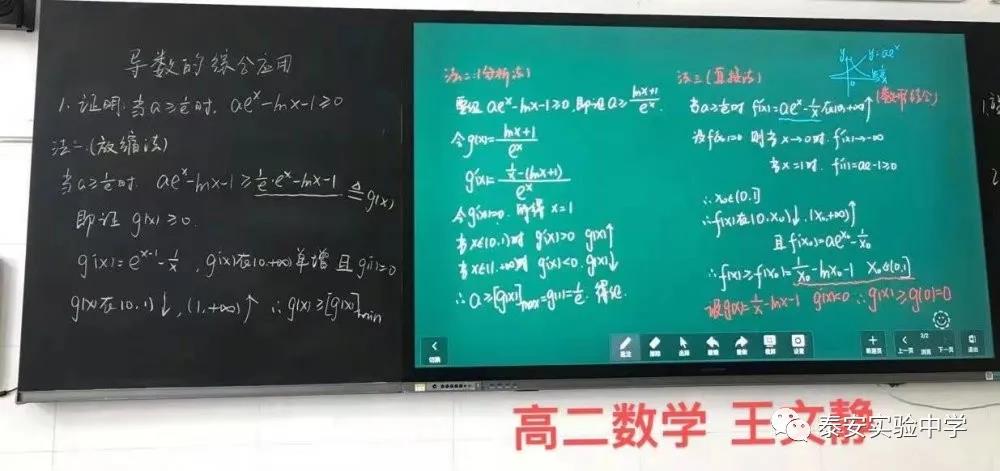 导数的综合应用
1.证明:当a≥1/e时. ae^x-lnx-1≥0
法一.(放缩法)
当a≥1/e时. ae^x-lnx-1≥1/e·e^x-lnx-1≜g(x)
即证 g(x)≥0.
g'(x)=e^(x-1)-1/x, g'(x)在(0.+∞)单增 且g'(1)=0
g(x)在(0.1)↓,(1,+∞)↑ ∴g(x)≥[g(x)]min
法二:(分析法)
要证 ae^x-lnx-1≥0.即证a≥(lnx+1)/e^x.
令g(x)=(lnx+1)/e^x
g'(x)=(1/x-(lnx+1))/e^x
令g'(x)=0. 解得 x=1
当x∈(0.1)时 g'(x)>0 g(x)↑
当x∈(1.+∞)时 g'(x)<0. g(x)↓
∴a≥[g(x)]max=g(1)=1/e. 得证.
法三(直接法)
y
y=ae^x
0
(数形结合)
当a≥1/e时 f'(x)=ae^x-1/x在(0,+∞)↑
设f'(x0)=0 则当x→0时. f'(x)→-∞
当x=1时. f'(1)=ae-1≥0
∴x0∈(0.1]
∴f(x)在(0.x0)↓.(x0,+∞)↑
且f'(x0)=ae^x0-1/x0
∴f(x)≥f(x0)=1/x0-lnx0-1 x0∈(0.1]
设g(x)=1/x-lnx-1 g'(x)<0 ∴g(x)≥g(0)=0
切换
批注
擦除
选择
撤销
恢复
设置
新建页
上一页
2/2
浏览
下一页
退出
高二数学 王文静
泰安实验中学